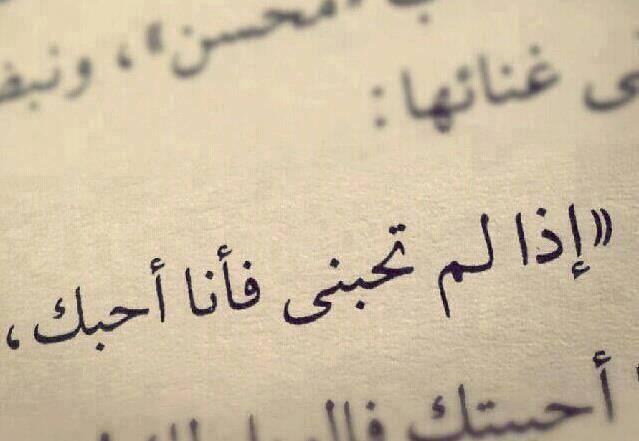 «محسن»، ونبض
فى غنائها:
«إذا لم تحبنى فأنا أحبك،
أحببتك